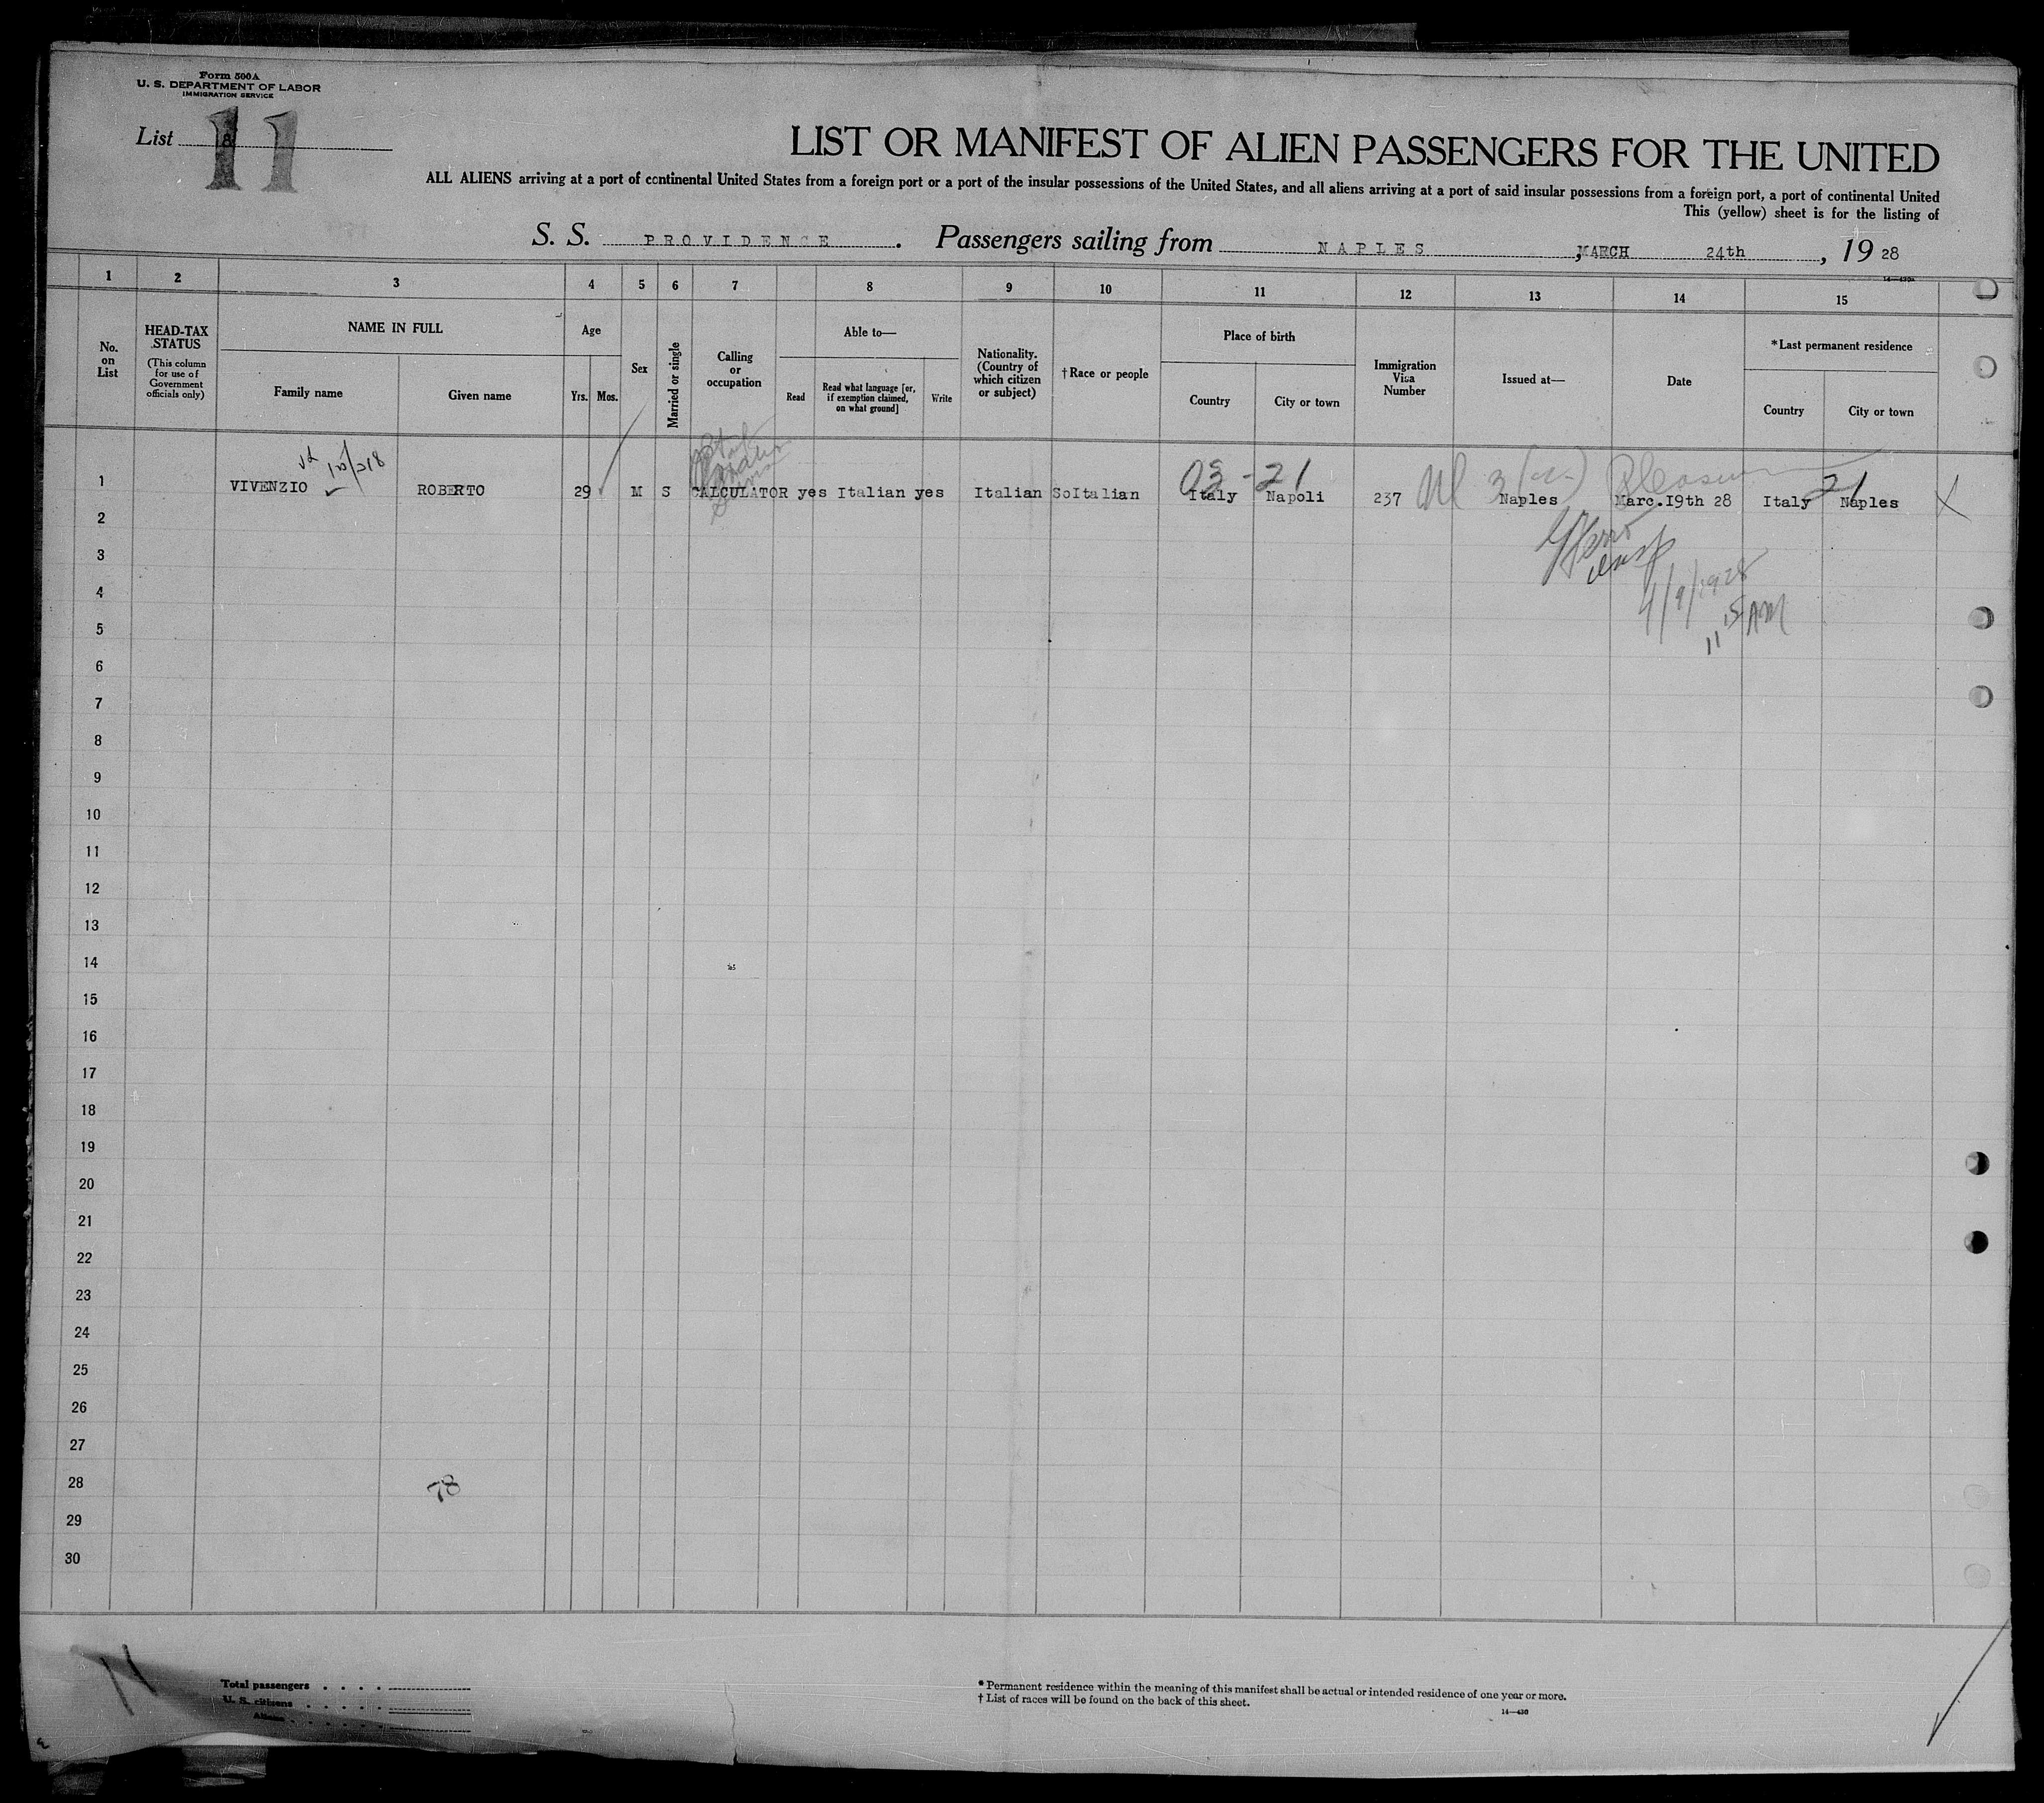 Form 500A
U. S. DEPARTMENT OF LABOR
IMMIGRATION SERVICE
List 11
8
LIST OR MANIFEST OF ALIEN PASSENGERS FOR THE UNITED
ALL ALIENS arriving at a port of continental United States from a foreign port or a port of the insular possessions of the United States, and all aliens arriving at a port of said insular possessions from a foreign port, a port of continental United
This (yellow) sheet is for the listing of
S. S. PROVIDENCE. Passengers sailing from NAPLES, MARCH 24th, 19 28
14—430a
1 2 3 4 5 6 7 8 9 10 11 12 13 14 15
No. on List
HEAD-TAX STATUS
(This column for use of Government officials only)
NAME IN FULL
Family name
Given name
Age
Yrs. Mos.
Sex
Married or single
Calling or occupation
Able to—
Read
Read what language [or, if exemption claimed, on what ground]
Write
Nationality. (Country of which citizen or subject)
†Race or people
Place of birth
Country
City or town
Immigration Visa Number
Issued at—
Date
*Last permanent residence
Country
City or town
03 - 21
21
1 VIVENZIO ROBERTO 29 M S CALCULATOR yes Italian yes Italian SoItalian Italy Napoli 237 Naples Marc.19th 28 Italy Naples X
2
3
4
4/9/1928
5
11 15 AM
6
7
8
9
10
11
12
13
14
15
16
17
18
19
20
21
22
23
24
25
26
27
28
78
29
30
11
Total passengers . . . .
U. S. citizens . . . . .
Aliens . . . . . .
* Permanent residence within the meaning of this manifest shall be actual or intended residence of one year or more.
† List of races will be found on the back of this sheet.
14—430